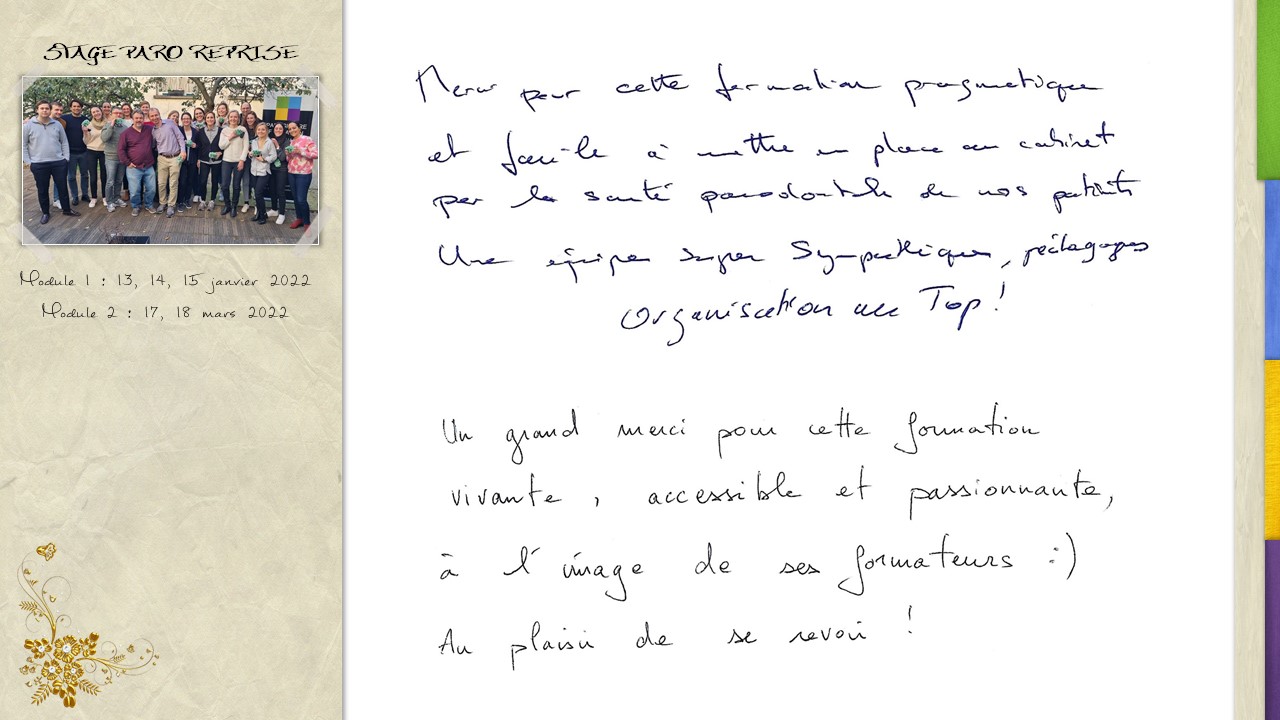 STAGE PARO REPRISE
Module 1 : 13, 14, 15 janvier 2022
Module 2 : 17, 18 mars 2022
Merci pour cette formation pragmatique
et facile à mettre en place au cabinet
pour la santé parodontale de nos patients
Une équipe super sympathique, pédagogues
Organisation au Top !
Un grand merci pour cette formation
vivante, accessible et passionnante,
à l'image de ses formateurs :)
Au plaisir de se revoir !